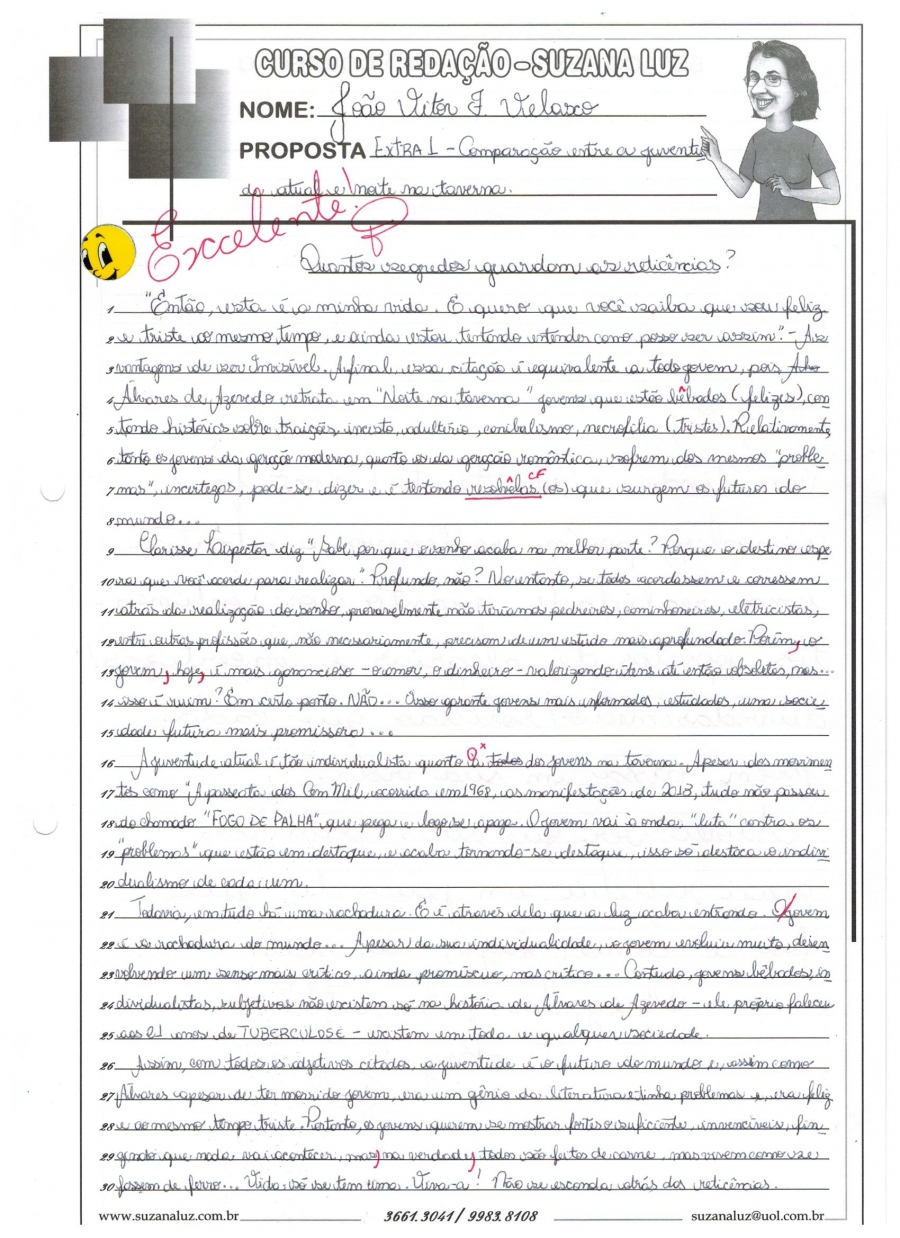 CURSO DE REDAÇÃO - SUZANA LUZ
NOME: João Vitor J. Velasco
PROPOSTA EXTRA 1 - Comparação entre a juventu
de atual e noite na taverna.
Excelente!
Quantos segredos guardam as reticências?
1 "Então, esta é a minha vida. E quero que você saiba que sou feliz
2 e triste ao mesmo tempo, e ainda estou tentando entender como posso ser assim". - As
3 vantagens de ser Invisível. Afinal, essa citação é equivalente a todo jovem, pois
4 Álvares de Azevedo retrata em "Noite na taverna" jovens que estão bêbados (felizes), con
5 tando histórias sobre traição, incesto, adultério, canibalismo, necrofilia (tristes). Relativamente,
6 tanto os jovens da geração moderna, quanto os da geração romântica, sofrem dos mesmos "proble
7 mas", incertezas, pode-se dizer e é tentando resolvêlas (os) que surgem os futuros do
CF
8 mundo...
9 Clarisse Lispector diz "Sabe por que o sonho acaba na melhor parte? Porque o destino espe
10 ra que você acorde para realizar". Profundo, não? No entanto, se todos acordassem e corressem
11 atrás da realização do sonho, provavelmente não teríamos pedreiros, caminhoneiros, eletricistas,
12 entre outras profissões que, não necessariamente, precisam de um estudo mais aprofundado. Porém, o
13 jovem, hoje, é mais ganancioso - o amor, o dinheiro - valorizando itens até então obsoletos, mas...
14 isso é ruim? Em certo ponto. NÃO... Isso garante jovens mais informados, estudados, uma socie
15 dade futura mais promissora...
16 A juventude atual é tão individualista quanto a todos dos jovens na taverna. Apesar dos movimen
17 tos como "A passeata dos Cem Mil, ocorrido em 1968, as manifestações de 2013, tudo não passou
18 do chamado "FOGO DE PALHA", que pega e logo se apaga. O jovem vai à onda, "luta" contra os
19 "problemas" que estão em destaque, e acaba tornando-se destaque, isso só destaca o indivi
20 dualismo de cada um.
21 Todavia, em tudo há uma rachadura. E é através dela que a luz acaba entrando. O jovem
22 é a rachadura do mundo... Apesar da sua individualidade, o jovem evoluiu muito, desen
23 volvendo um senso mais crítico, ainda promíscuo, mas crítico... Contudo, jovens bêbados, in
24 dividualistas, subjetivos não existem só na história de Álvares de Azevedo - ele próprio faleceu
25 aos 21 anos de TUBERCULOSE - existem em toda e qualquer sociedade.
26 Assim, com todos os adjetivos citados, a juventude é o futuro do mundo e, assim como
27 Álvares apesar de ter morrido jovem, era um gênio da literatura e tinha problemas e, era feliz
28 e ao mesmo tempo triste. Portanto, os jovens querem se mostrar fortes o suficiente, invencíveis, fin
29 gindo que nada vai acontecer, mas, na verdade, todos são feitos de carne, mas vivem como se
30 fossem de ferro... Vida: só se tem uma. Viva-a! Não se esconda atrás das reticências.
www.suzanaluz.com.br 3661.3041 / 9983.8108 suzanaluz@uol.com.br